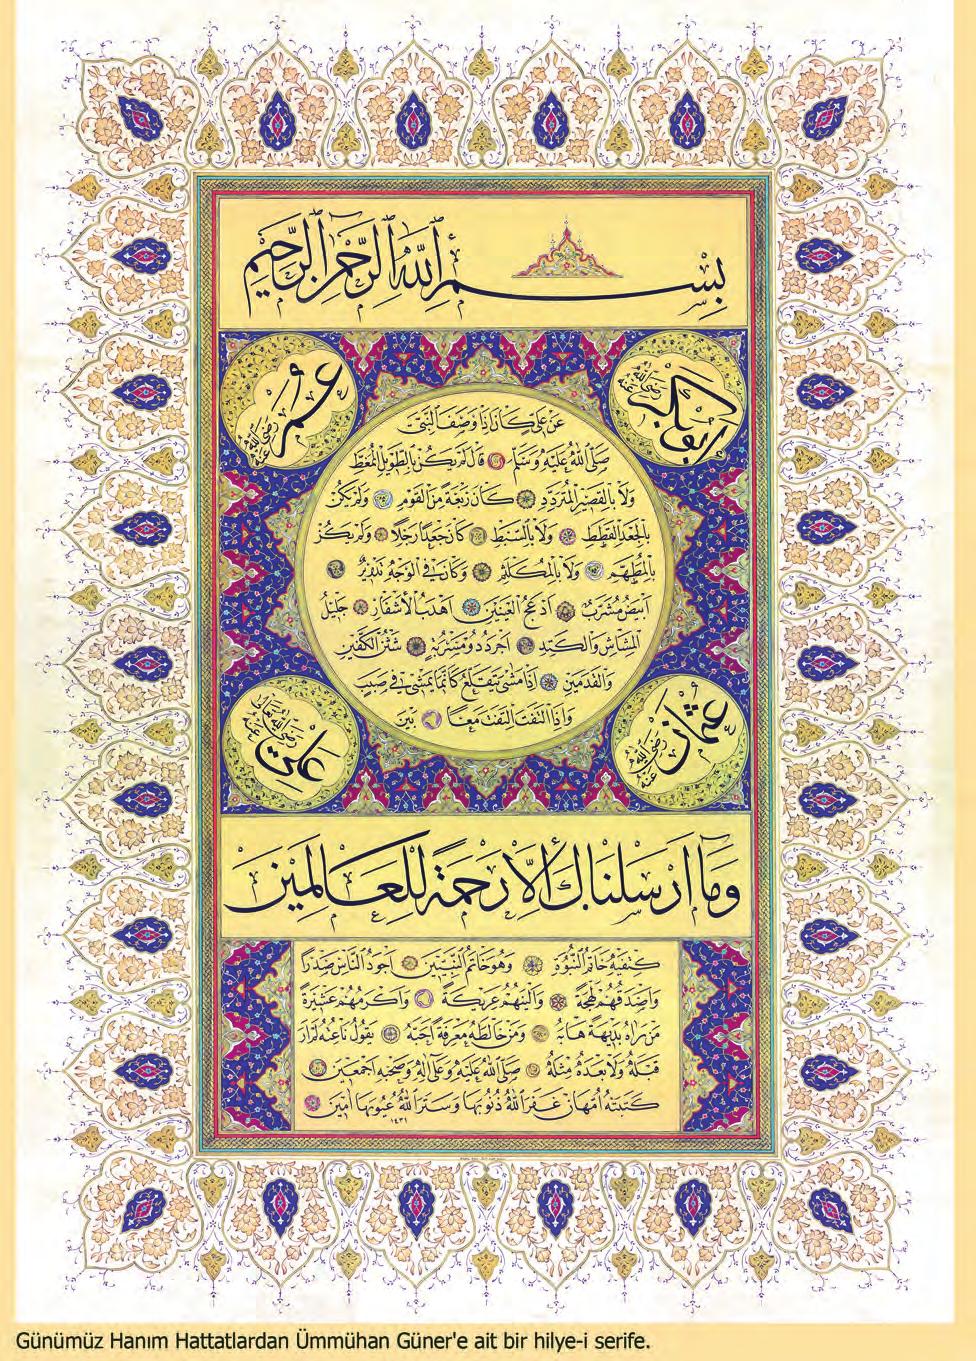 بِسْمِ اللّٰهِ الرَّحْمٰنِ الرَّحِيمِ
ابوبكر رضى الله عنه
عمر رضى الله عنه
عن على كان اذا وصف النبى
صلى الله عليه وسلم قال لم يكن بالطويل الممغط
ولا بالقصير المتردد كان ربعة من القوم ولم يكن
بالجعد القطط ولا بالسبط كان جعدا رجلا ولم يكن
بالمطهم ولا بالمكلثم وكان فى الوجه تدوير
ابيض مشرب ادعج العينين اهدب الاشفار جليل
المشاش والكتد اجرد ذو مسربة شثن الكفين
والقدمين اذا مشى يتقلع كانما يمشى فى صبب
واذا التفت التفت معا بين
عثمان رضى الله عنه
على رضى الله تعالى عنه
وما ارسلناك الا رحمة للعالمين
كتفيه خاتم النبوة وهو خاتم النبيين اجود الناس صدرا
واصدقهم لهجة والينهم عريكة واكرمهم عشيرة
من رآه بديهة هابه ومن خالطه معرفة احبه يقول ناعته لم ار
قبله ولا بعده مثله صلى الله عليه وعلى اله وصحبه اجمعين
كتبته امهان غفر الله ذنوبها وستر الله عيوبها آمين
١٤٣١
Günümüz Hanım Hattatlardan Ümmühan Güner'e ait bir hilye-i serife.